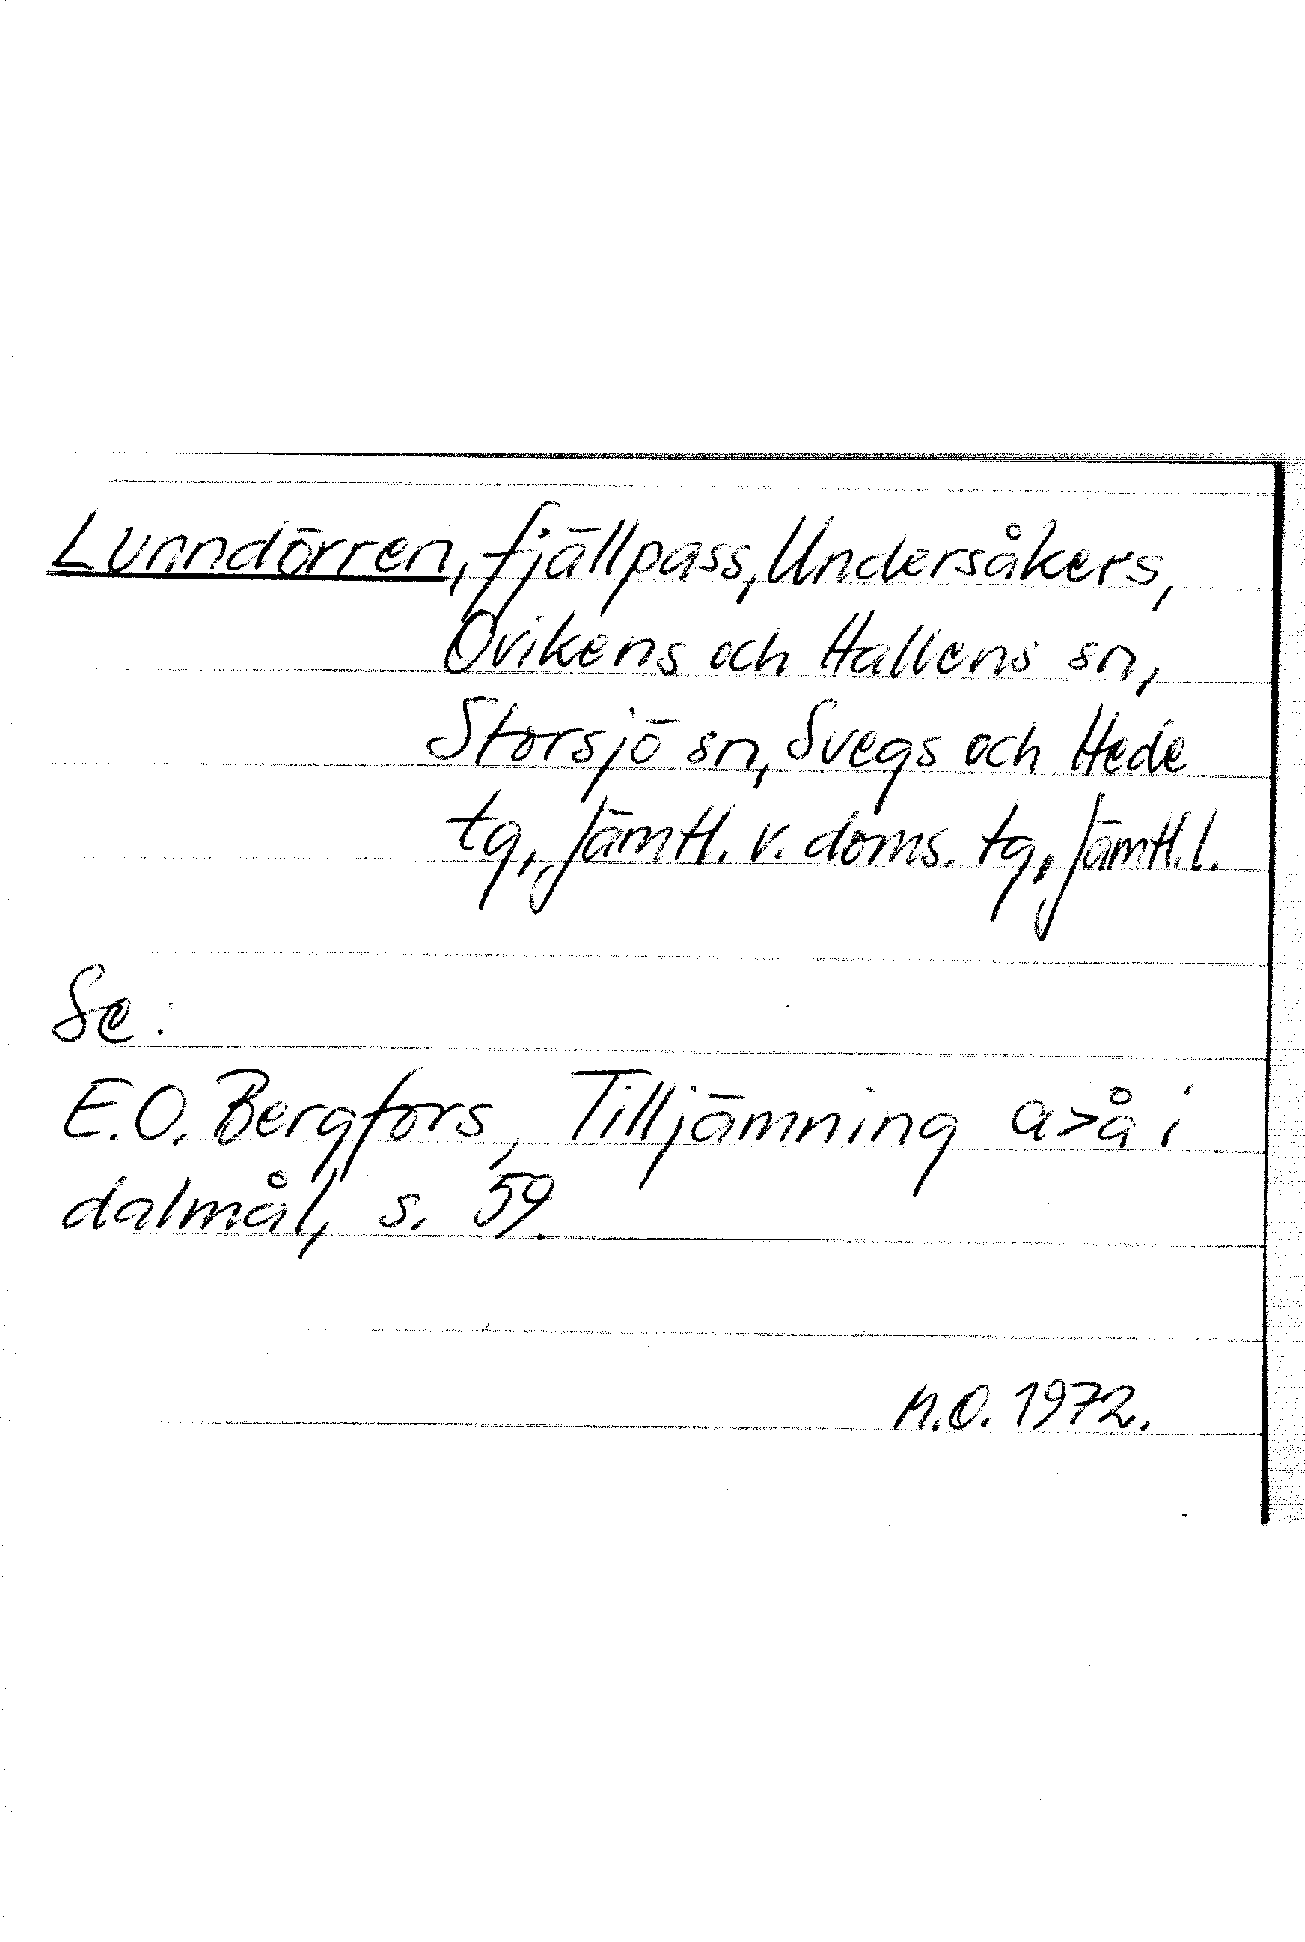 Lunndörren, fjällpass, Undersåkers,
Ovikens och Hallens sn,
Storsjö sn, Svegs och Hede
tg, Jämtl. v. doms. tg, Jämtl. l.
Se:
E.O. Bergfors, Tilljämning a>å i
dalmål, s. 59.
M.O. 1972.